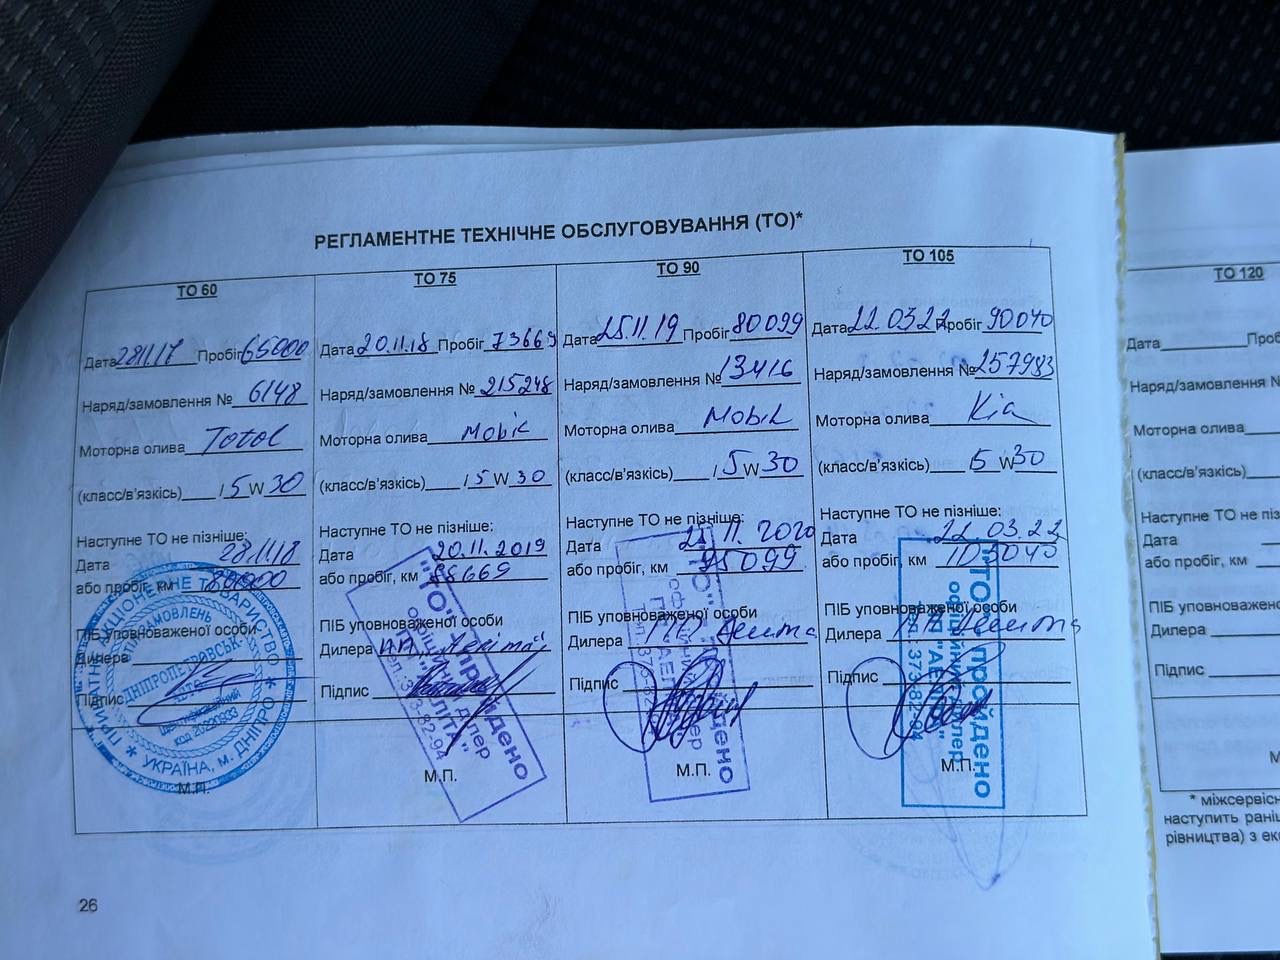 РЕГЛАМЕНТНЕ ТЕХНІЧНЕ ОБСЛУГОВУВАННЯ (ТО)*
ТО 60
Дата 28.11.17 Пробіг 65000
Наряд/замовлення № 6148
Моторна олива Total
(класс/в'язкісь) / 5 W 30
Наступне ТО не пізніше:
Дата 28.11.18
або пробіг, км
ПІБ уповноваженої особи
Дилера
Підпис
М.П.
ПРИВАТНЕ АКЦІОНЕРНЕ ТОВАРИСТВО
УКРАЇНА, м. ДНІПРО
ЗАМОВЛЕНЬ
ДНІПРОПЕТРОВСЬК
АВТО
Ідентифікаційний
код
ТО 75
Дата 20.11.18 Пробіг 73669
Наряд/замовлення № 215248
Моторна олива Mobil
(класс/в'язкісь) / 5 W 30
Наступне ТО не пізніше:
Дата 20.11.2019
або пробіг, км 88669
ПІБ уповноваженої особи
Дилера
Підпис
М.П.
"ТО" пройдено
офіційний дилер
"АЕЛІТА"
тел. 373-82-94
ТО 90
Дата 25.11.19 Пробіг 80099
Наряд/замовлення № 13416
Моторна олива Mobil
(класс/в'язкісь) / 5 W 30
Наступне ТО не пізніше:
Дата 25.11.2020
або пробіг, км 95099
ПІБ уповноваженої особи
Дилера ПП Аеліта
Підпис
М.П.
"ТО" пройдено
офіційний дилер
ПІІ "АЕЛІТА"
ТО 105
Дата 22.03.22 Пробіг 90040
Наряд/замовлення № 257983
Моторна олива Kia
(класс/в'язкісь) 5 W 30
Наступне ТО не пізніше:
Дата 22.03.23
або пробіг, км 105040
ПІБ уповноваженої особи
Дилера ПП Аеліта
Підпис
М.П.
"ТО" пройдено
офіційний дилер
"АЕЛІТА"
373-82-94
26
ТО 120
Дата
Наряд/замовлення
Моторна олива
(класс/в'язкісь)
Наступне ТО не
Дата
або пробіг, км
ПІБ уповноваженої
Дилера
Підпис
* міжсервісн
наступить рані
рівництва) з